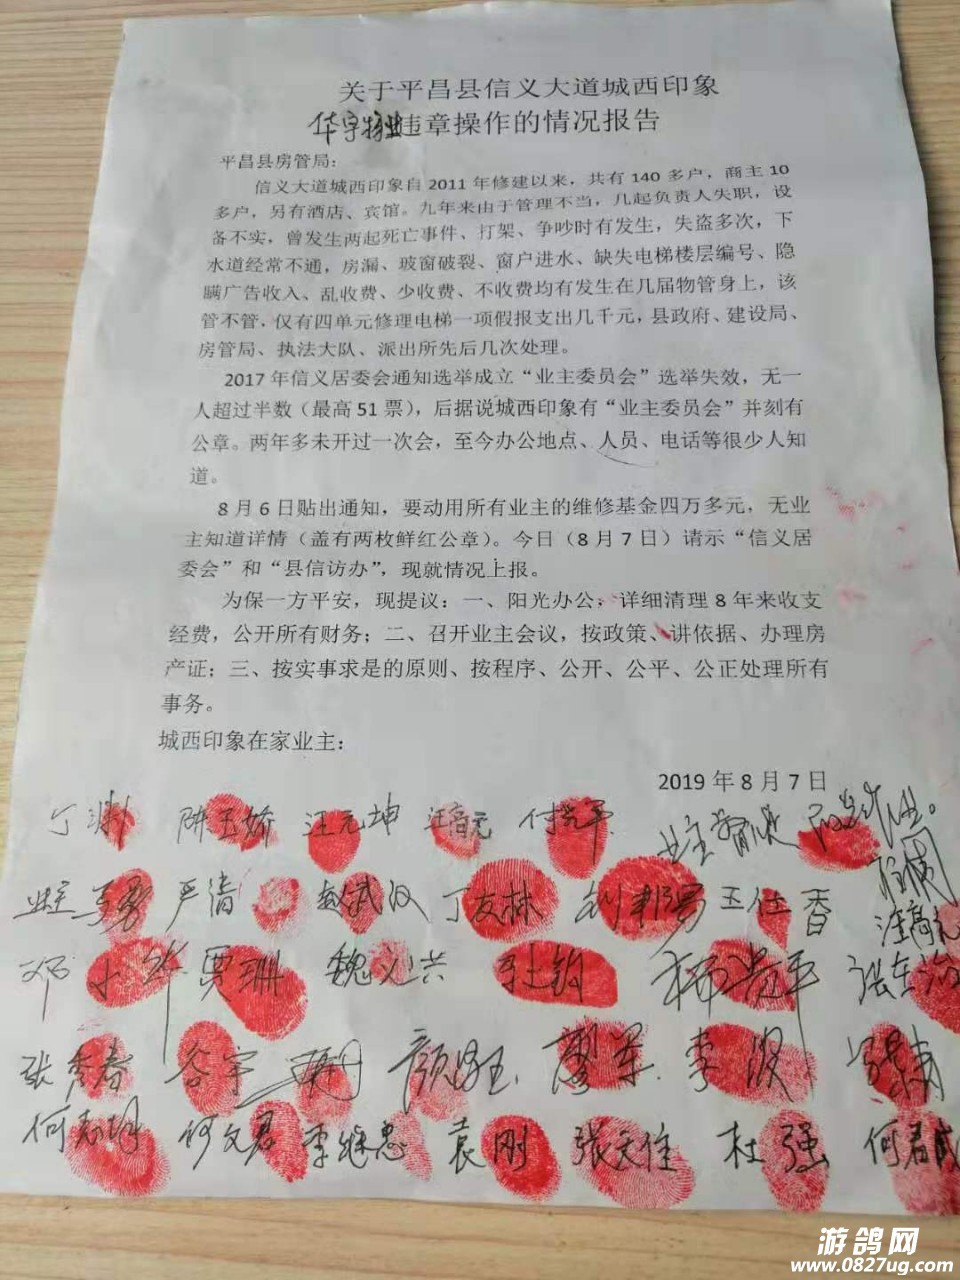 关于平昌县信义大道城西印象
华宇物业违章操作的情况报告
平昌县房管局：
信义大道城西印象自 2011 年修建以来，共有 140 多户，商主 10
多户，另有酒店、宾馆。九年来由于管理不当，几起负责人失职，设
备不实，曾发生两起死亡事件、打架、争吵时有发生，失盗多次，下
水道经常不通，房漏、玻窗破裂、窗户进水、缺失电梯楼层编号、隐
瞒广告收入、乱收费、少收费、不收费均有发生在几届物管身上，该
管不管，仅有四单元修理电梯一项假报支出几千元，县政府、建设局、
房管局、执法大队、派出所先后几次处理。
2017 年信义居委会通知选举成立“业主委员会”选举失效，无一
人超过半数（最高 51 票），后据说城西印象有“业主委员会”并刻有
公章。两年多未开过一次会，至今办公地点、人员、电话等很少人知
道。
8 月 6 日贴出通知，要动用所有业主的维修基金四万多元，无业
主知道详情（盖有两枚鲜红公章）。今日（8 月 7 日）请示“信义居
委会”和“县信访办”，现就情况上报。
为保一方平安，现提议：一、阳光办公，详细清理 8 年来收支
经费，公开所有财务；二、召开业主会议，按政策、讲依据、办理房
产证；三、按实事求是的原则、按程序、公开、公平、公正处理所有
事务。
城西印象在家业主：
2019 年 8 月 7 日
丁渊 陈玉娇 汪元坤 汪高元
业主
严清 赵武汉 丁友林 王仕香
汪高元
邓 贾珊 魏义共 杜钧 杨贵平
张秀春 谷宇 颜 廖军 李
何 何文君 李继惠 袁刚 张天住 杜强 何春成
游鸽网
www.0827ug.com